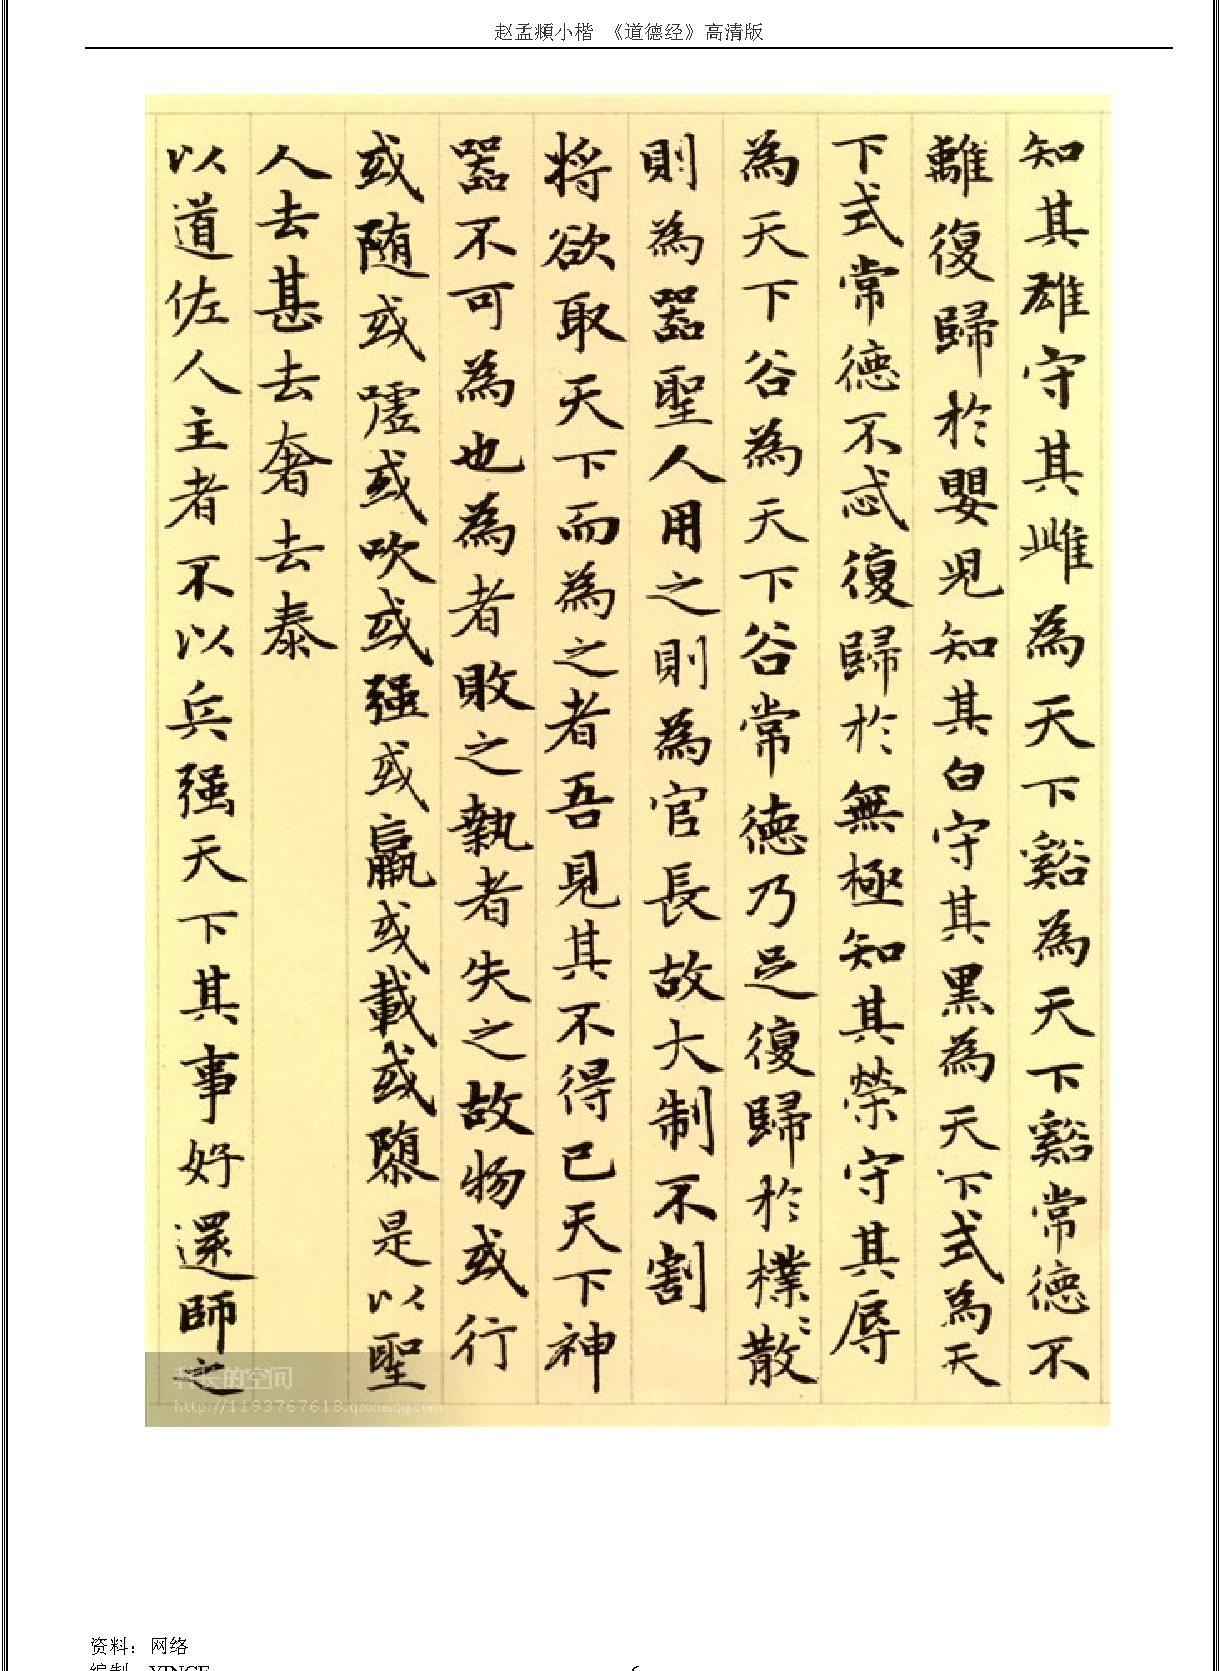 赵孟頫小楷 《道德经》高清版
知其雄守其雌為天下谿為天下谿常德不
離復歸於嬰児知其白守其黑為天下式為天
下式常德不忒復歸於無極知其榮守其辱
為天下谷為天下谷常德乃足復歸於樸〻散
則為器聖人用之則為官長故大制不割
将欲取天下而為之者吾見其不得已天下神
器不可為也為者敗之執者失之故物或行
或随或嘘或吹或强或羸或載或隳是以聖
人去甚去奢去泰
以道佐人主者不以兵强天下其事好還師之
的空间
http://1193767618.qzone.qq.com
资料：网络
编制：YINCE
6